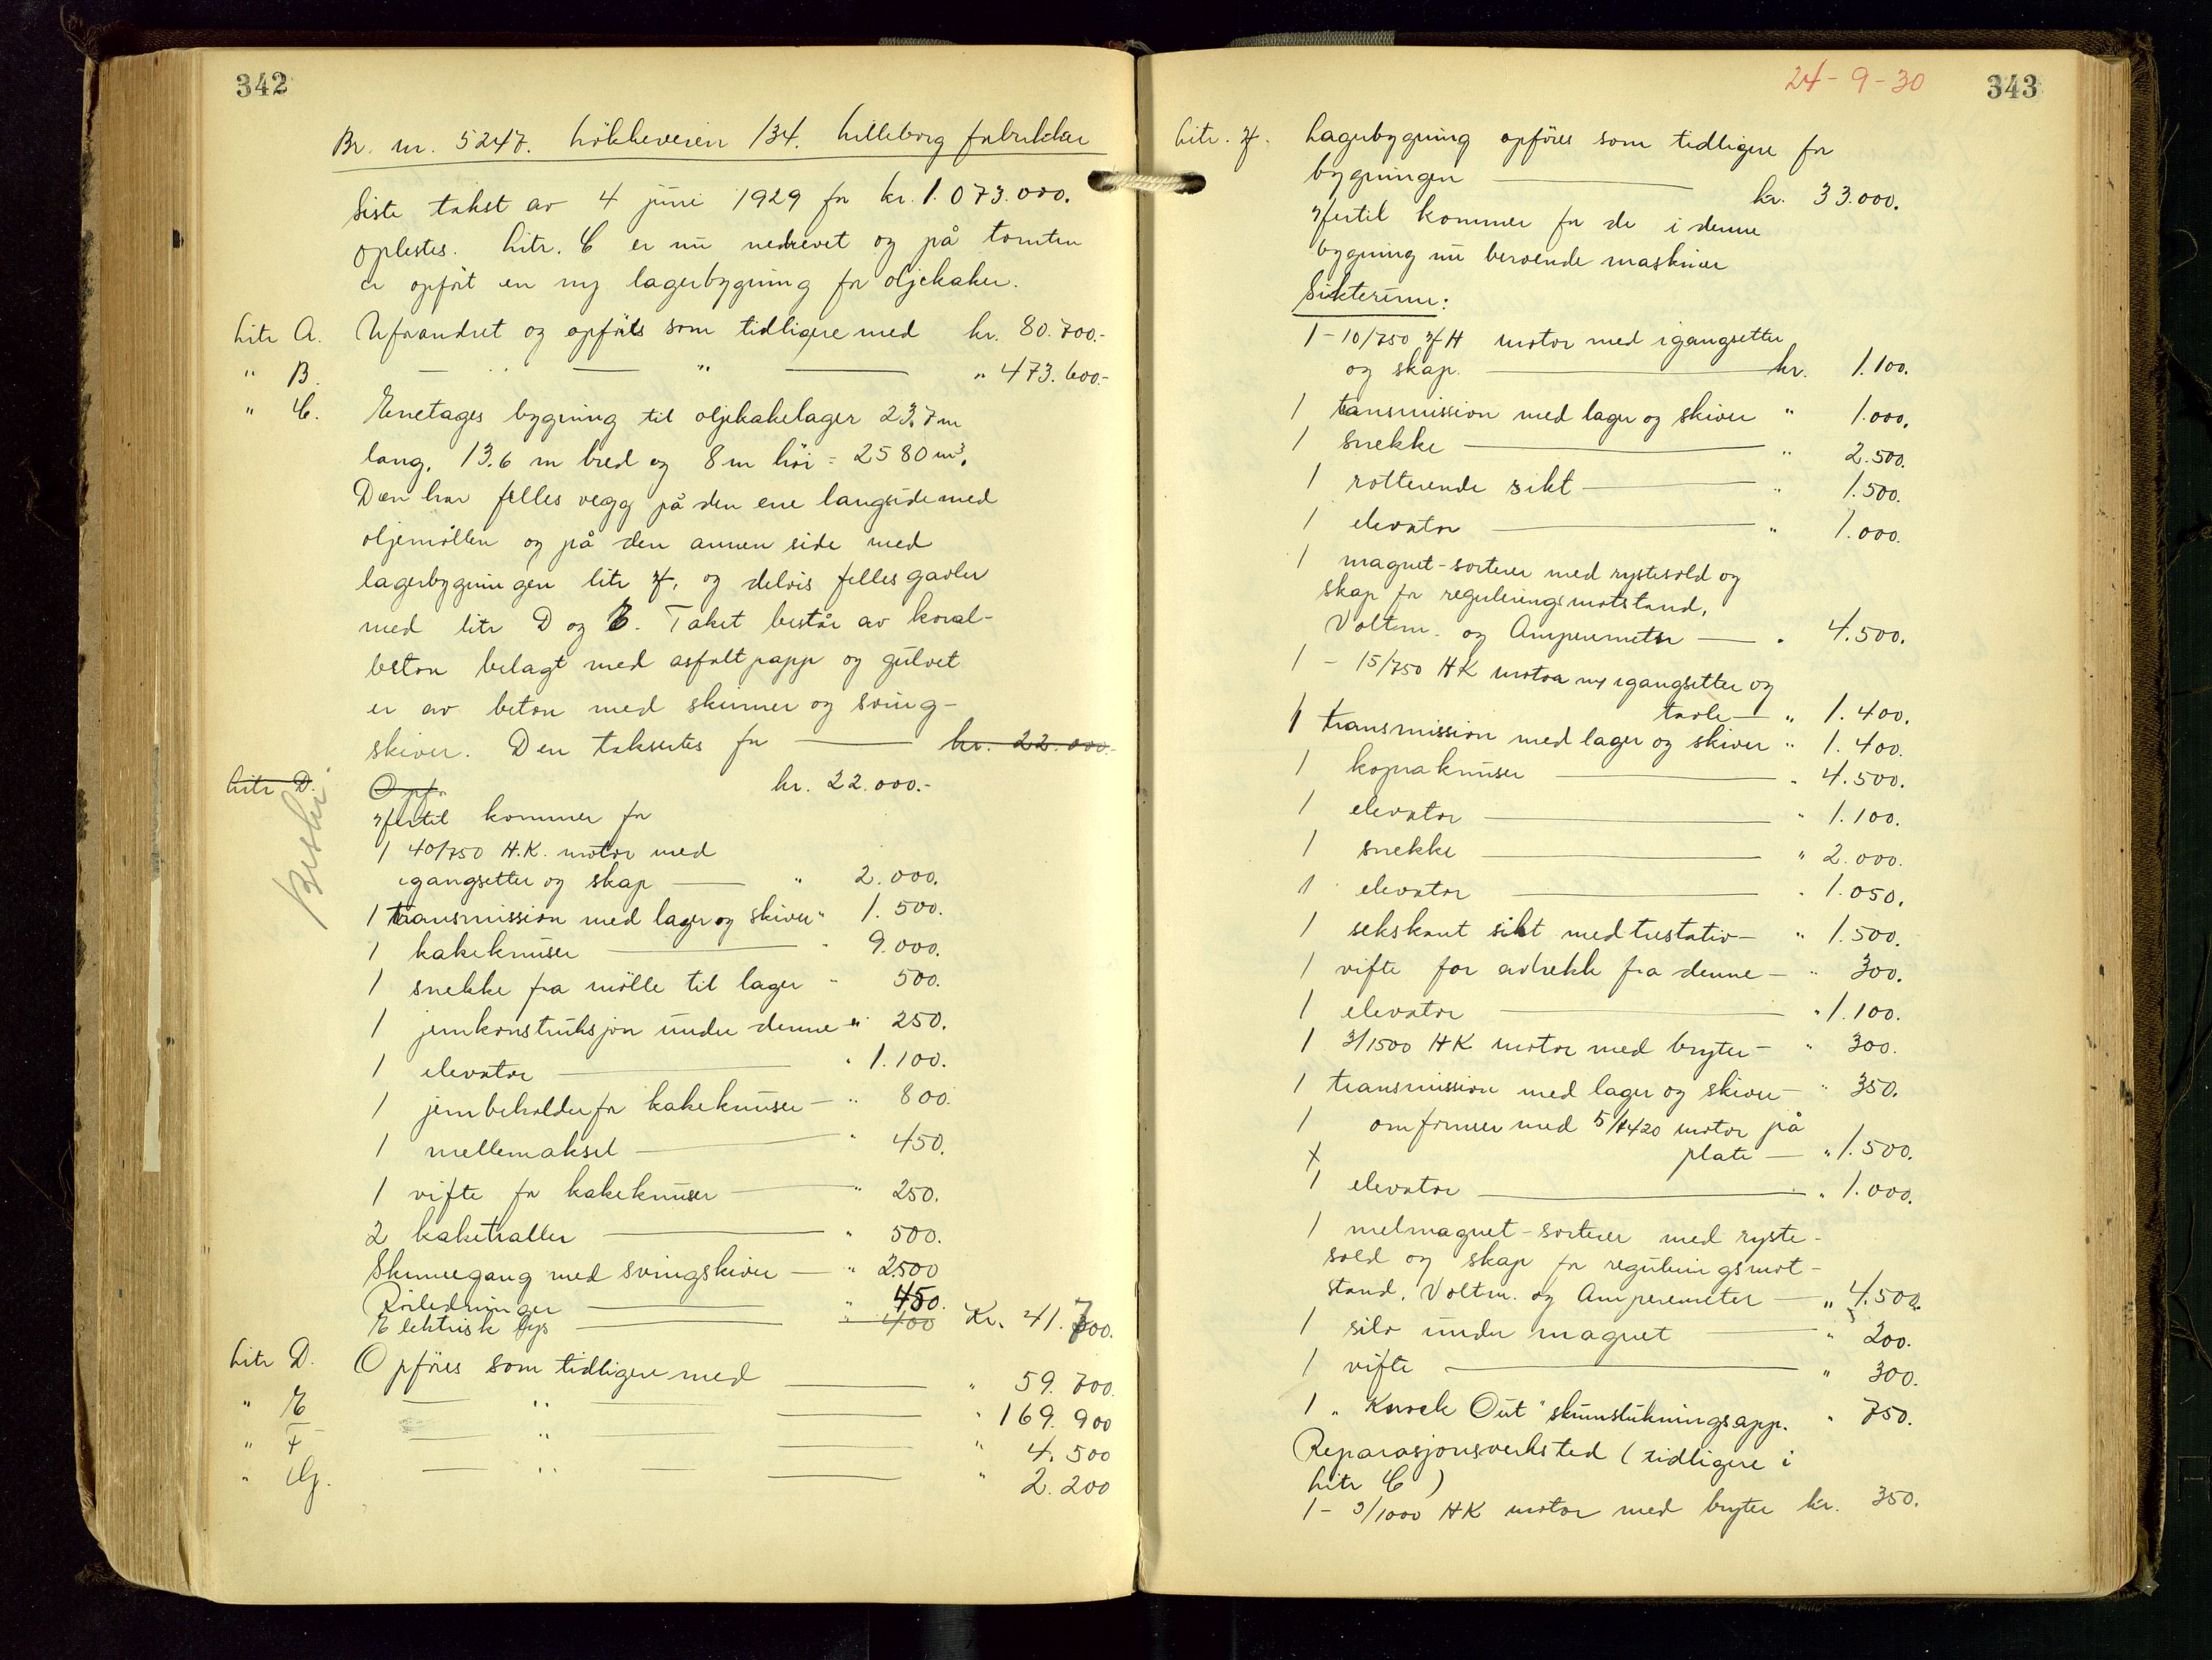 342
Br. nr. 5247. Lökkeveien 134. Lilleborg fabrikker
Siste takst av 4 juni 1929 for kr. 1.073.000.
oplestes. Litr. C er nu nedrevet og på tomten
er opfört en ny lagerbygning for oljekaker.
Litr A. Uforandret og opföres som tidligere med kr. 80.700.-
" B. — " — " — " 473.600.-
" C. Enetages bygning til oljekakelager 23.7 m
lang, 13.6 m bred og 8 m höi = 2580 m³.
Den har felles vegg på den ene langside med
oljemöllen og på den annen side med
lagerbygningen litr H, og delvis felles gavler
med litr D og B. Taket består av koral-
beton belagt med asfaltpapp og gulvet
er av beton med skinner og sving-
skiver. Den takseres for — kr. 22.000.
Litr D. Opfr kr. 22.000.-
Hertil kommer for
1 40/750 H.K. motor med
igangsetter og skap — " 2.000.
1 transmission med lager og skiver " 1.500.
1 kakeknuser — " 9.000.
1 snekke fra mölle til lager " 500.
1 jernkonstruksjon under denne " 250.
1 elevator — " 1.100.
1 jernbeholder for kakeknuser — " 800.
1 mellemaksel — " 450.
1 vifte for kakeknuser — " 250.
2 kaketraller — " 500.
Skinnegang med svingskiver — " 2500
Rörledninger — " 450.
Elektrisk lys — " 400 Kr. 41.700.
Litr D. Opföres som tidligere med — " 59.700.
" E — " — " 169.900
" F — " — " 4.500
" G. — " — " 2.200
24-9-30
343
Litr. H. Lagerbygning opföres som tidligere for
bygningen — kr. 33.000.
Hertil kommer for de i denne
bygning nu beroende maskiner
Sikterum:
1 - 10/750 HK motor med igangsetter
og skap. — kr. 1.100.
1 transmission med lager og skiver " 1.000.
1 snekke — " 2.500.
1 rotterende sikt — " 1.500.
1 elevator — " 1.000.
1 magnet-sorterer med rystesold og
skap for reguleringsmotstand,
Voltm. og Amperemeter — " 4.500.
1 - 15/750 HK motor m/ igangsetter og
tavle — " 1.400.
1 transmission med lager og skiver " 1.400.
1 kopraknuser — " 4.500.
1 elevator — " 1.100.
1 snekke — " 2.000.
1 elevator — " 1.050.
1 sekskant sikt med trestativ — " 1.500.
1 vifte for avtrekk fra denne — " 300.
1 elevator — " 1.100.
1 3/1500 HK motor med bryter — " 300.
1 transmission med lager og skiver — " 350.
1 omformer med 5/1420 motor på
plate — " 1.500.
1 elevator — " 1.000.
1 melmagnet-sorterer med ryste-
sold og skap for reguleringsmot-
stand, Voltm. og Amperemeter — " 4.500.
1 silo under magnet — " 200.
1 vifte — " 300.
1 "Knock Out" skumslukningsapp. " 750.
Reparasjonsverksted (tidligere i
Litr C)
1 - 3/1000 HK motor med bryter kr. 350.